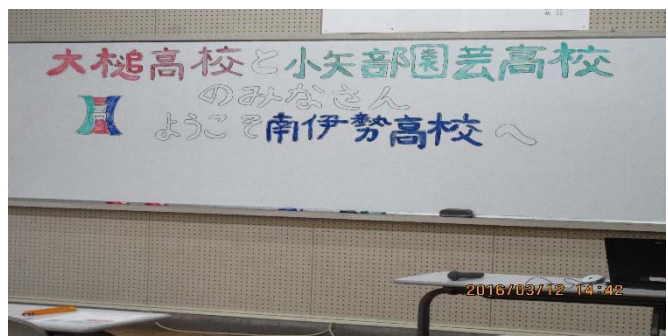 大槌高校と小矢部園芸高校
のみなさん
ようこそ南伊勢高校へ
2016/03/12 14:42